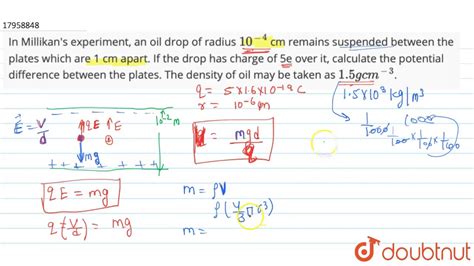 17958848
In Millikan's experiment, an oil drop of radius 10⁻⁴ cm remains suspended between the
plates which are 1 cm apart. If the drop has charge of 5e over it, calculate the potential
difference between the plates. The density of oil may be taken as 1.5gcm⁻³.
q = 5×1.6×10⁻¹⁹ C
r = 10⁻⁶ m
1.5×10³ kg/m³
E = V/d
qE
E
10⁻² m
mg
V = mgd/q
qE = mg
m = ρV
ρ(4/3 π r³)
q(V/d) = mg
m =
doubtnut